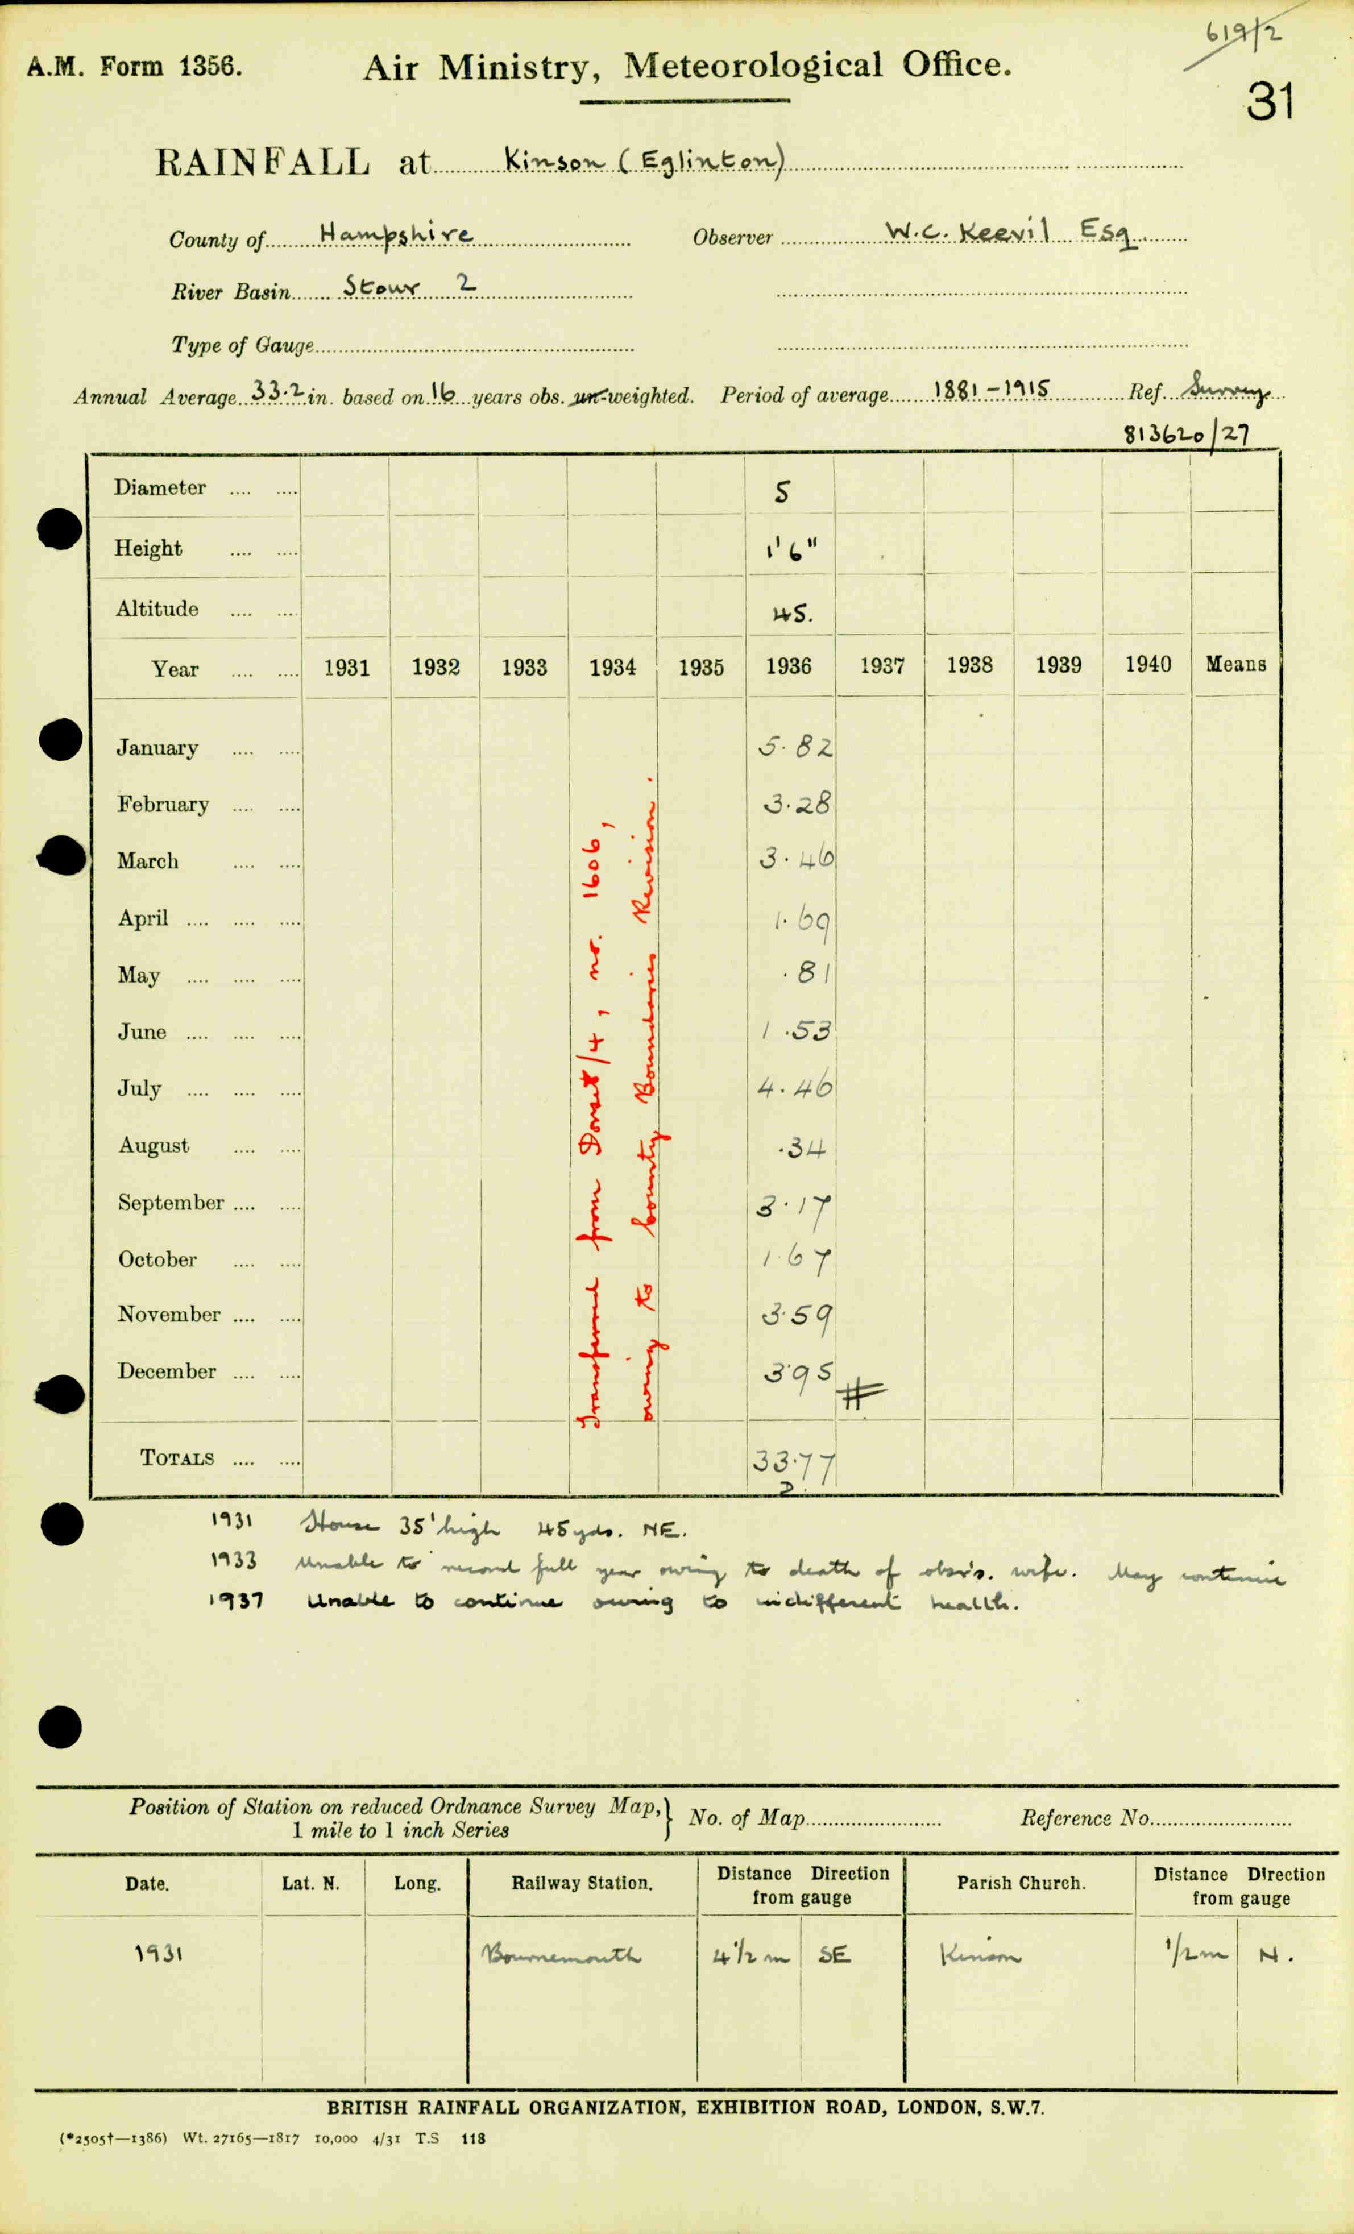 619/2
A.M. Form 1356.
Air Ministry, Meteorological Office.
31
RAINFALL at Kinson (Eglinton)
County of Hampshire Observer W.C. Keevil Esq
River Basin Stour 2
Type of Gauge
Annual Average 33.2 in. based on 16 years obs. un-weighted. Period of average 1881-1915 Ref. Survey
813620/27
Diameter .... .... 5
Height .... .... 1'6"
Altitude .... .... 45.
Year .... .... 1931 1932 1933 1934 1935 1936 1937 1938 1939 1940 Means
January .... .... 5.82
February .... .... 3.28
March .... .... 3.46
April .... .... .... 1.69
May .... .... .... .81
June .... .... .... 1.53
July .... .... .... 4.46
August .... .... .34
September .... .... 3.17
October .... .... 1.67
November .... .... 3.59
December .... .... 3.95
TOTALS .... .... 33.77
2
Transferred from Dorset/4, no. 1606,
owing to County Boundaries Revision.
1931 House 35' high 45 yds. NE.
1933 Unable to record full year owing to death of obsr's. wife. May continue
1937 Unable to continue owing to indifferent health.
Position of Station on reduced Ordnance Survey Map,} No. of Map Reference No.
1 mile to 1 inch Series
Date. Lat. N. Long. Railway Station. Distance Direction from gauge Parish Church. Distance Direction from gauge
1931 Bournemouth 4½ m SE Kinson ½ m N.
BRITISH RAINFALL ORGANIZATION, EXHIBITION ROAD, LONDON, S.W.7.
(*2505†—1386) Wt. 27165—1817 10,000 4/31 T.S 118